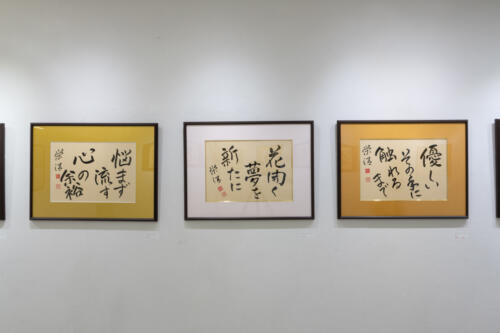 悩まず
流す
心の
余裕
花開く
夢を
新たに
優しい
その手に
触れる
まで